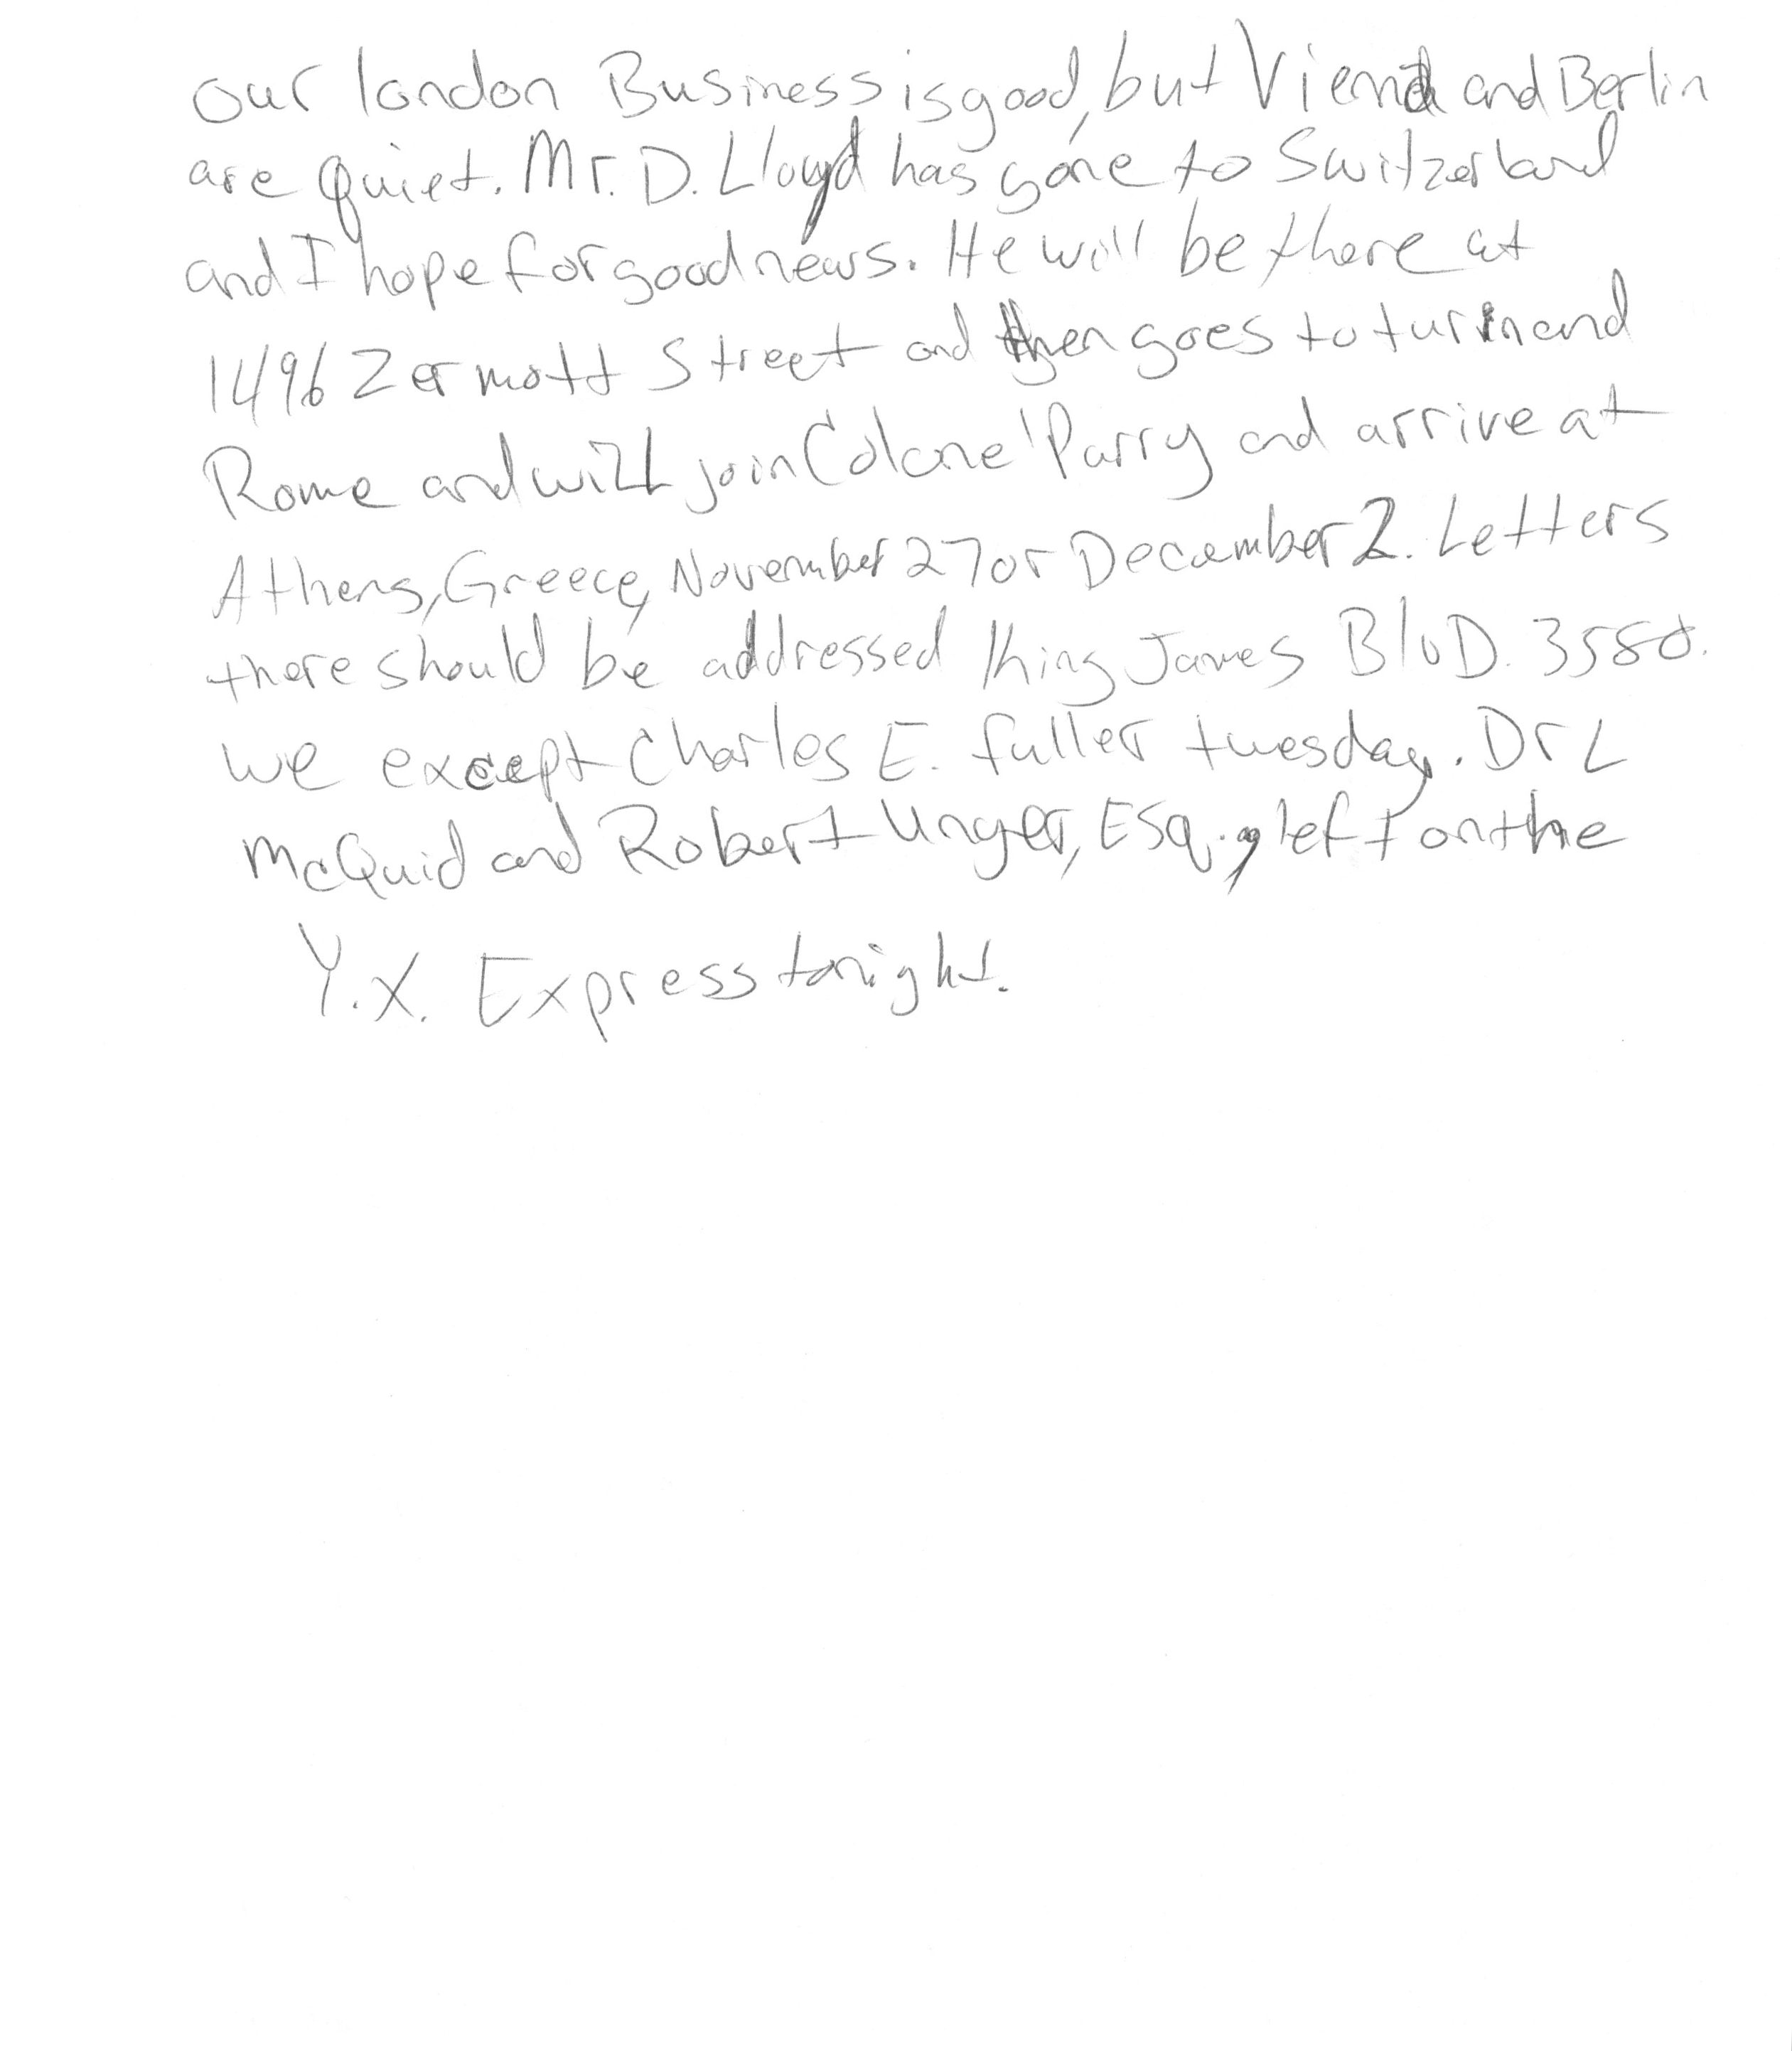 our london Business is good, but Vienna and Berlin
are quiet. Mr. D. Lloyd has gone to Switzerland
and I hope for good news. He will be there at
1496 Zermott Street and then goes to turin and
Rome and will join Colonel Parry and arrive at
Athens, Greece, November 27 or December 2. Letters
there should be addressed King James BlvD. 3580.
we except Charles E. fuller tuesday. Dr L
McQuid and Robert Unger, ESq., left on the
Y.X. Express tonight.